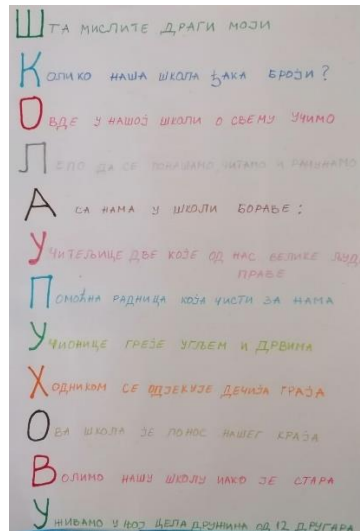 ШТА МИСЛИТЕ ДРАГИ МОЈИ
КОЛИКО НАША ШКОЛА ЂАКА БРОЈИ?
ОВДЕ У НАШОЈ ШКОЛИ О СВЕМУ УЧИМО
ЛЕПО ДА СЕ ПОНАШАМО ЧИТАМО И РАЧУНАМО
А СА НАМА У ШКОЛИ БОРАВЕ:
УЧИТЕЉИЦЕ ДВЕ КОЈЕ ОД НАС ВЕЛИКЕ ЉУДЕ
ПРАВЕ
ПОМОЋНА РАДНИЦА КОЈА ЧИСТИ ЗА НАМА
УЧИОНИЦЕ ГРЕЈЕ УГЉЕМ И ДРВИМА
ХОДНИКОМ СЕ ОДЈЕКУЈЕ ДЕЧИЈА ГРАЈА
ОВА ШКОЛА ЈЕ ПОНОС НАШЕГ КРАЈА
ВОЛИМО НАШУ ШКОЛУ ИАКО ЈЕ СТАРА
УЖИВАМО У ЊОЈ ЦЕЛА ДРУЖИНА ОД 12 ДРУГАРА